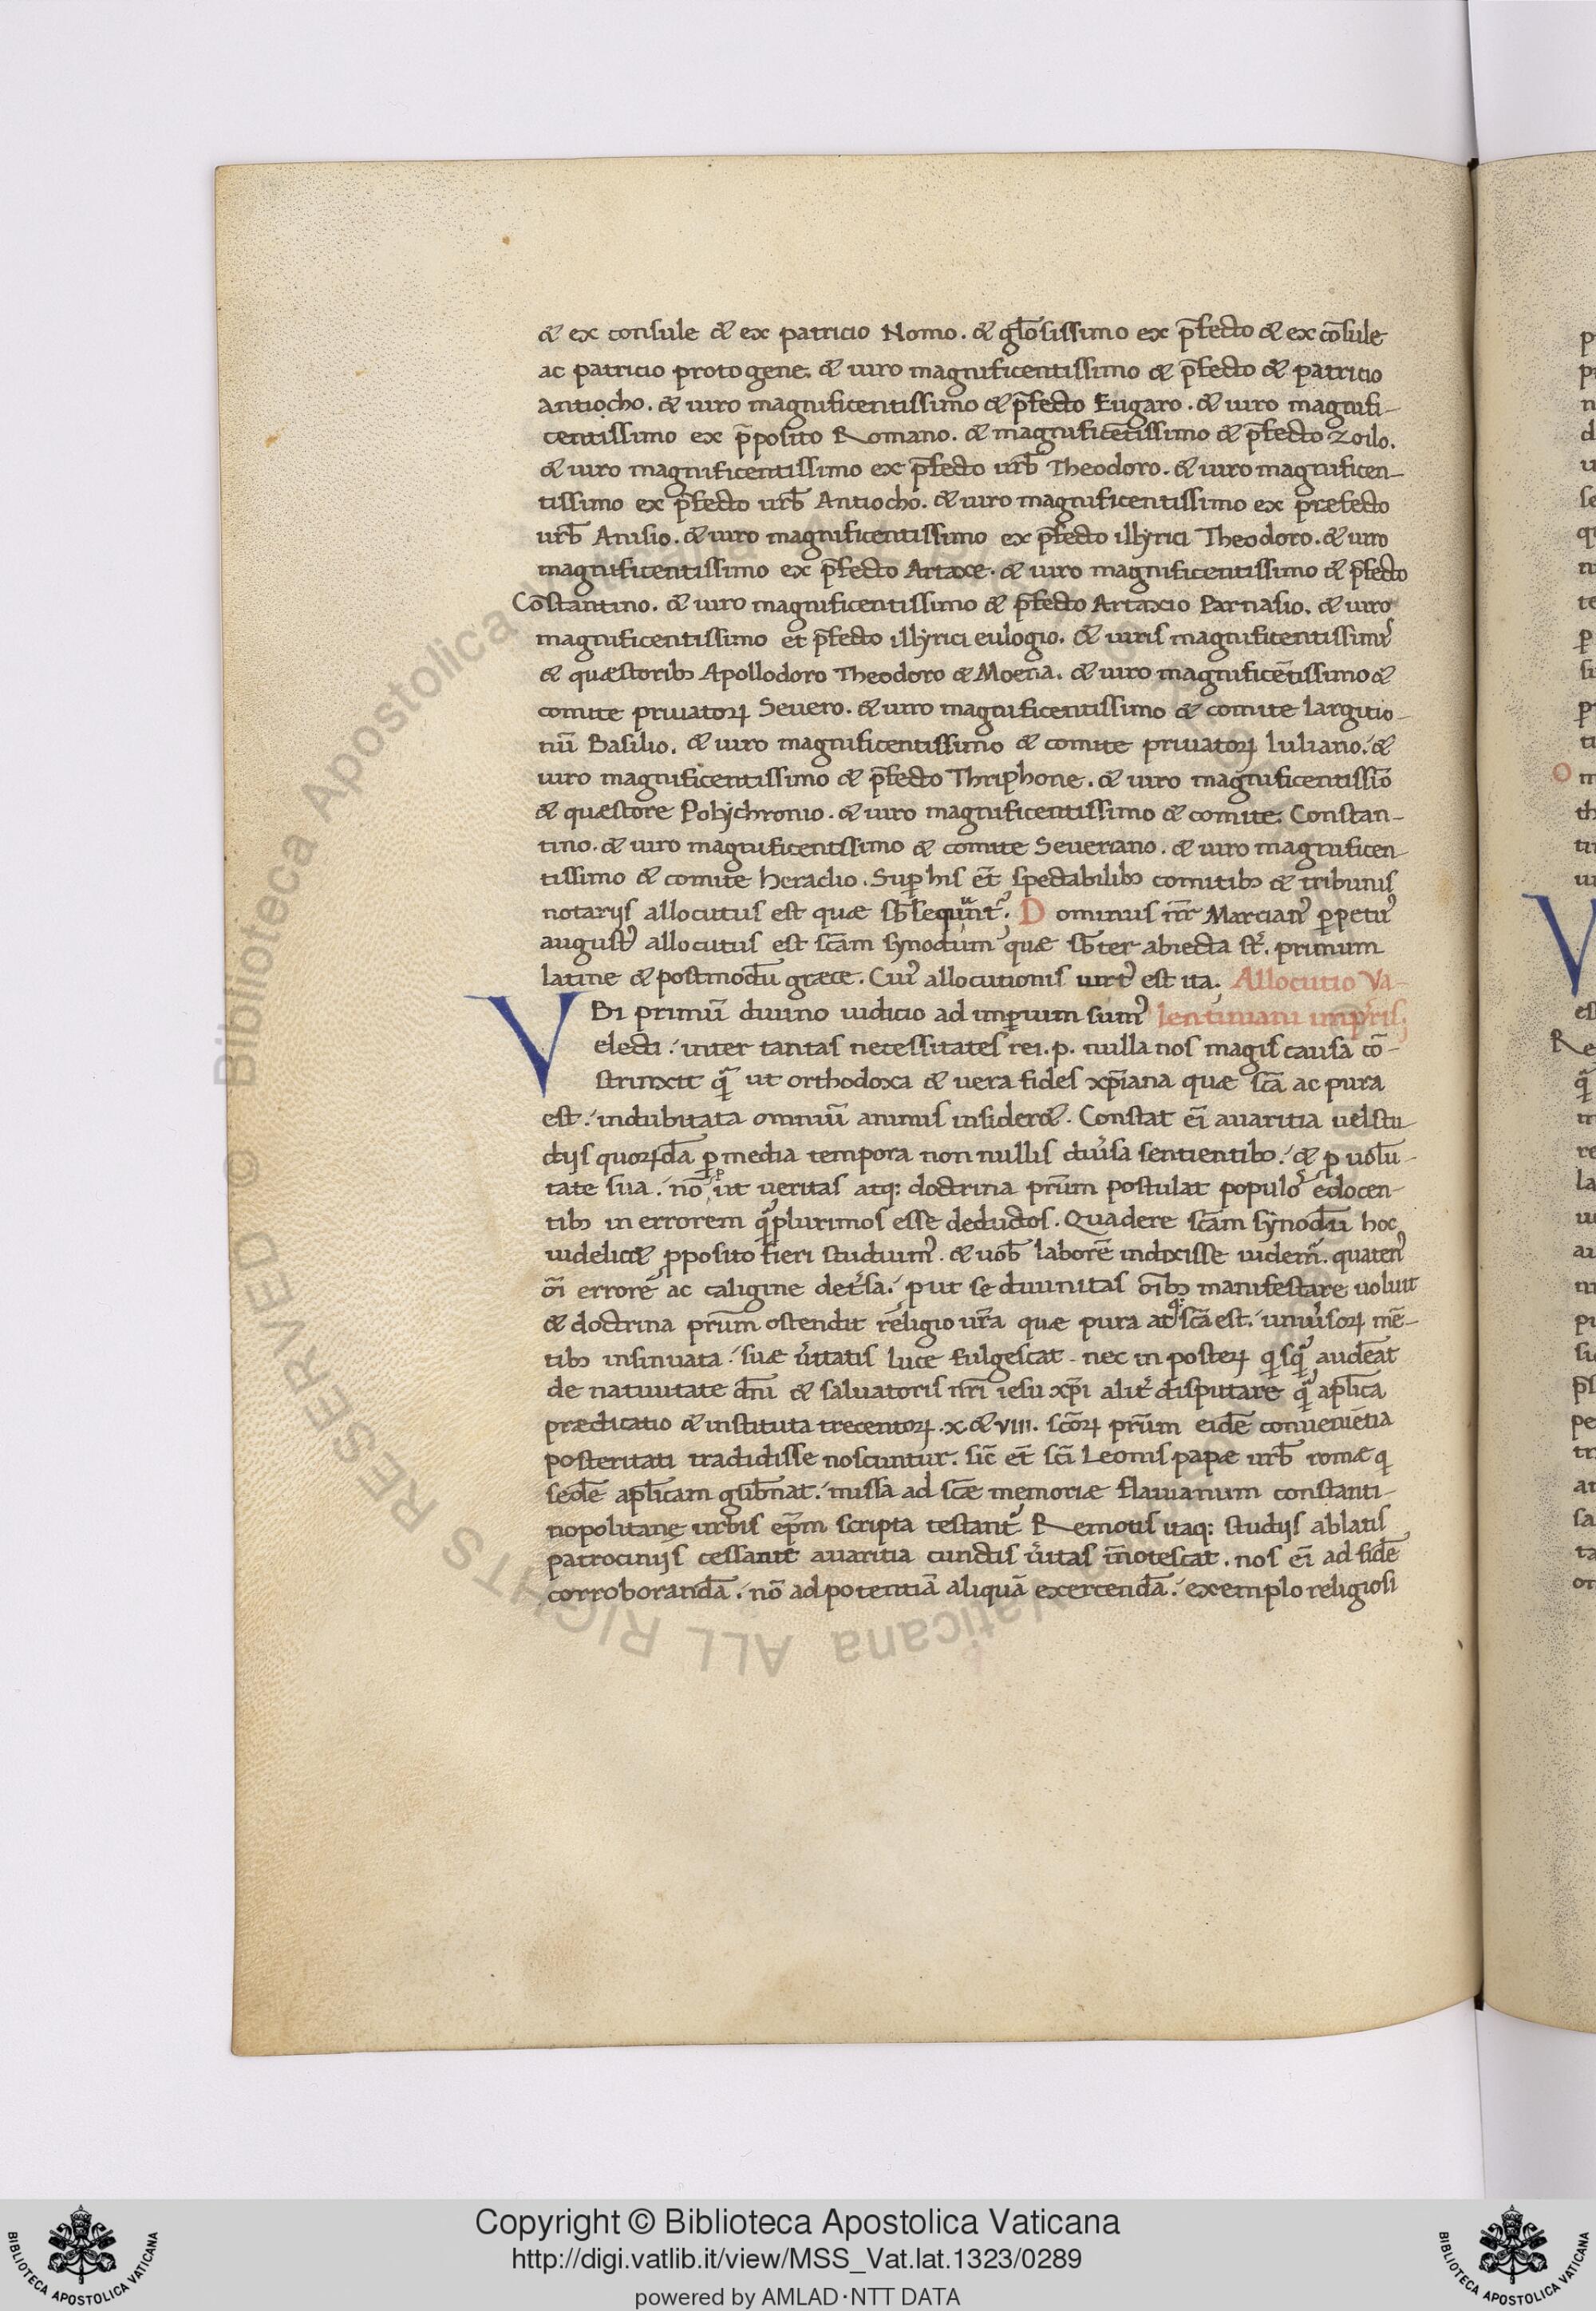 & ex consule & ex patricio Nomo. & gl̄osissimo ex p̄fecto & ex cōsule
ac patricio protogene. & uiro magnificentissimo & p̄fecto & patricio
Antiocho. & uiro magnificentissimo & p̄fecto Eugaro. & uiro magnifi-
centissimo ex p̄posito Romano. & magnificētissimo & p̄fecto Zoilo.
& uiro magnificentissimo ex p̄fecto urb̄ Theodoro. & uiro magnificen-
tissimo ex p̄fecto urb̄ Antiocho. & uiro magnificentissimo ex præfecto
urb̄ Anisio. & uiro magnificentissimo ex p̄fecto illyrici Theodoro. & uiro
magnificentissimo ex p̄fecto Artaxe. & uiro magnificentissimo & p̄fecto
Cōstantino. & uiro magnificentissimo & p̄fecto Artaxio Parnasio. & uiro
magnificentissimo et p̄fecto illyrici eulogio. & uiris magnificentissimis
& quæstorib; Apollodoro Theodoro & Moena. & uiro magnificētissimo &
comite priuatoꝝ Seuero. & uiro magnificentissimo & comite largitio-
nū Basilio. & uiro magnificentissimo & comite priuatoꝝ Iuliano. &
uiro magnificentissimo & p̄fecto Thriphone. & uiro magnificentissīo
& quæstore Polychronio. & uiro magnificentissimo & comite. Constan-
tino. & uiro magnificentissimo & comite Seueriano. & uiro magnificen-
tissimo & comite heraclio. Suꝑ his et̄ spectabilib; comitib; & tribunis
notarijs allocutus est quæ sb̄sequūnt᷒. Dominus nr̄ Marcian᷒ ꝑpetu᷒
august᷒ allocutus est sc̄am synodum quæ sb̄ter abiecta st᷒. primum
latine & postmodū græce. Cui᷒ allocutionis uirt᷒ est ita. Allocutio Va-
VBi primū diuino iudicio ad imꝑium sum᷒ lentiniani imp̄ris;
electi. inter tantas necessitates rei. p. nulla nos magis causa cō-
strinxit q̄ ut orthodoxa & uera fides xp̄iana quæ sc̄a ac pura
est. indubitata omniū animis insider&. Constat ei̅ auaritia uel stu
dijs quorūdā ꝑ media tempora non nullis diu᷒sa sentientib;. & ꝑ uolū-
tate sua. nō ut ueritas atq; doctrina pr̄um postulat populo᷒ edocen-
tib; in errorem q̄plurimos esse deductos. Quadere sc̄am synodū hoc
uidelic& ꝓposito fieri studuim᷒. & uob̄ laborē indixisse uidem᷒. quaten᷒
oī errore ac caligine det᷒sa. put se diuinitas oībꝫ manifestare uoluit
& doctrina pr̄um ostendit religio ur̄a quæ pura atq; sc̄a est. uniu᷒soꝝ mē-
tib; insinuata. suæ u᷒itatis luce fulgescat. nec in posteꝝ qisq̄ audeat
de natiuitate dn̄i & saluatoris nr̄i iesu xp̄i alit᷒ disputare q̄ ap̄lica
prædicatio & instituta trecentoꝝ. x & VIII. sc̄oꝝ pr̄um eidē conueniētia
posteritati tradidisse noscuntur. sic̄ et̄ sc̄i Leonis papæ urb̄ romæ q
sedē ap̄licam gub̄nat. missa ad sc̄æ memoriæ flauianum constanti-
nopolitanę urbis ep̄m scripta testant᷒. Remotis itaq; studijs ablatis
patrocinijs cessante auaritia cunctis u᷒itas īnotescat. nos ei̅ ad fidē
corroborandā. nō ad potentiā aliquā exercendā. exemplo religiosi
Copyright © Biblioteca Apostolica Vaticana
http://digi.vatlib.it/view/MSS_Vat.lat.1323/0289
powered by AMLAD·NTT DATA